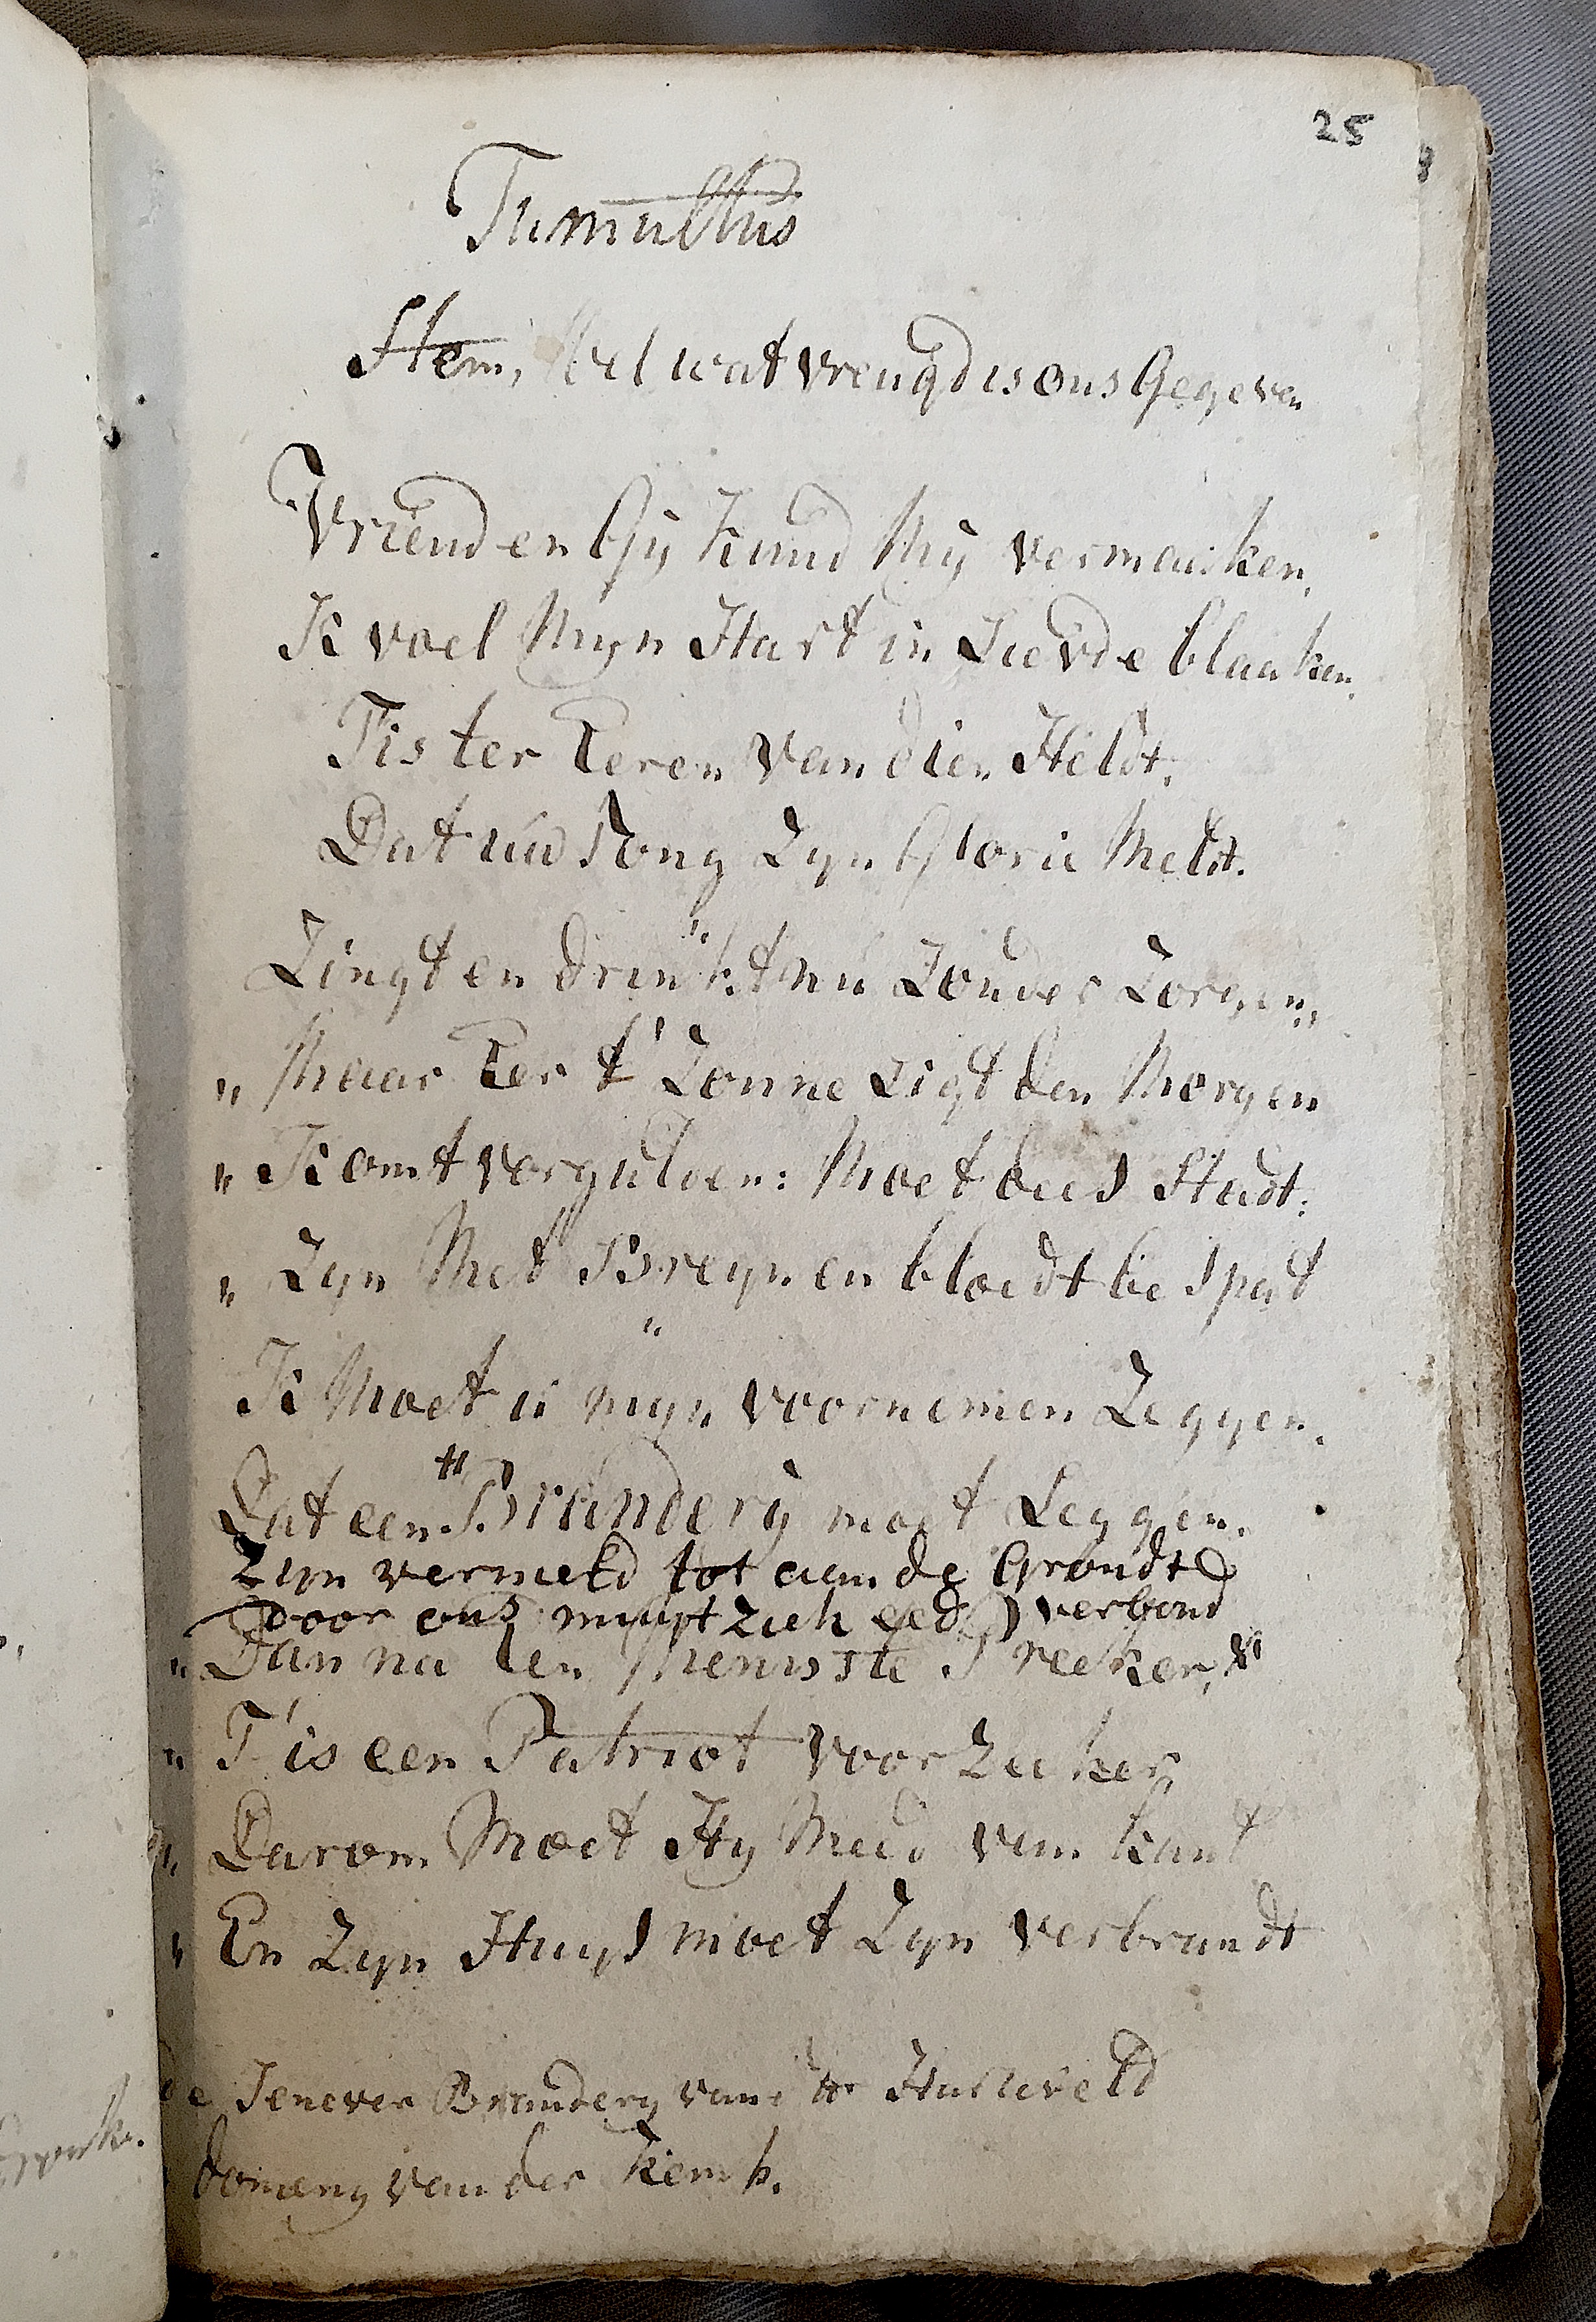 25
Tumultus
Stem, Wel wat vreugd is ons Gegeven
Vrienden Gÿ kund Mÿ vermaaken,
Ik voel Myn Hart in Liefde blaaken,
Tis ter Eeren van dien Heldt,
Dat uw Tong Zyn Glorie Meldt.
"
Zingt en drinkt nu Zonder Zorgen,,
„ Maar Eer t' Zonne Ligt den Morgen
„ Komt vergulden: Moet dees Stadt:
„ Zyn Met Breyn en bloedt be Spat
"
Ik Moet u myn voornemen Zeggen,
Dat een # Brandery moet Leggen.
Zyn vernield tot aan de Grondt
Door ons muyt Ziek eed verbond
„ Dan na den Menniste Preeker, *
„ T'is een Patriot voor Zeeker
„ Darom Moet Hy Meed van kant
„ En Zyn Huys moet Zyn verbrandt
de Jenever Brandery van Hr
domeny van der Kemp.